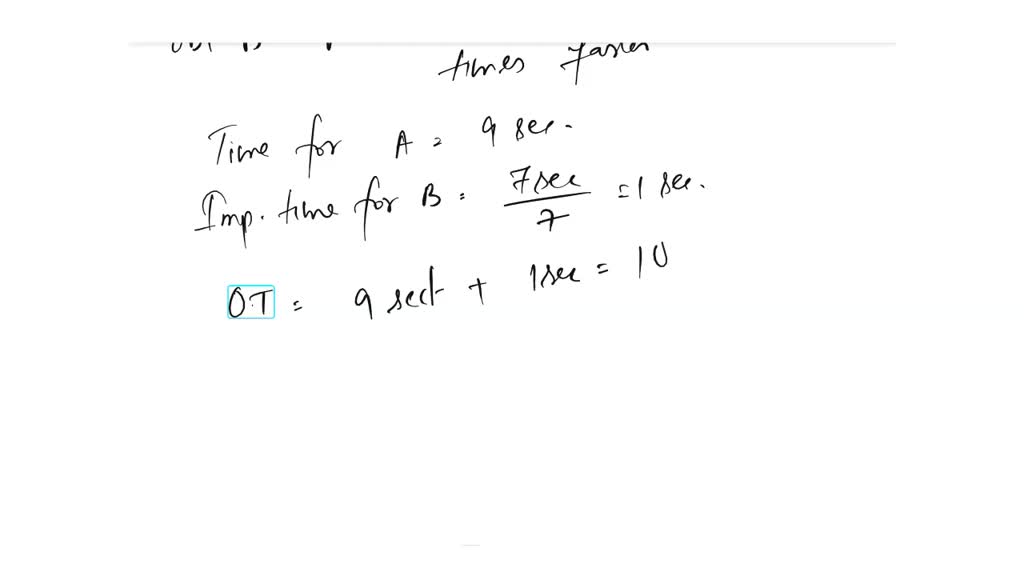 times faster
Time for A = 9 sec.
Imp. time for B = 7sec / 7 = 1 sec.
OT = 9 sec + 1sec = 10